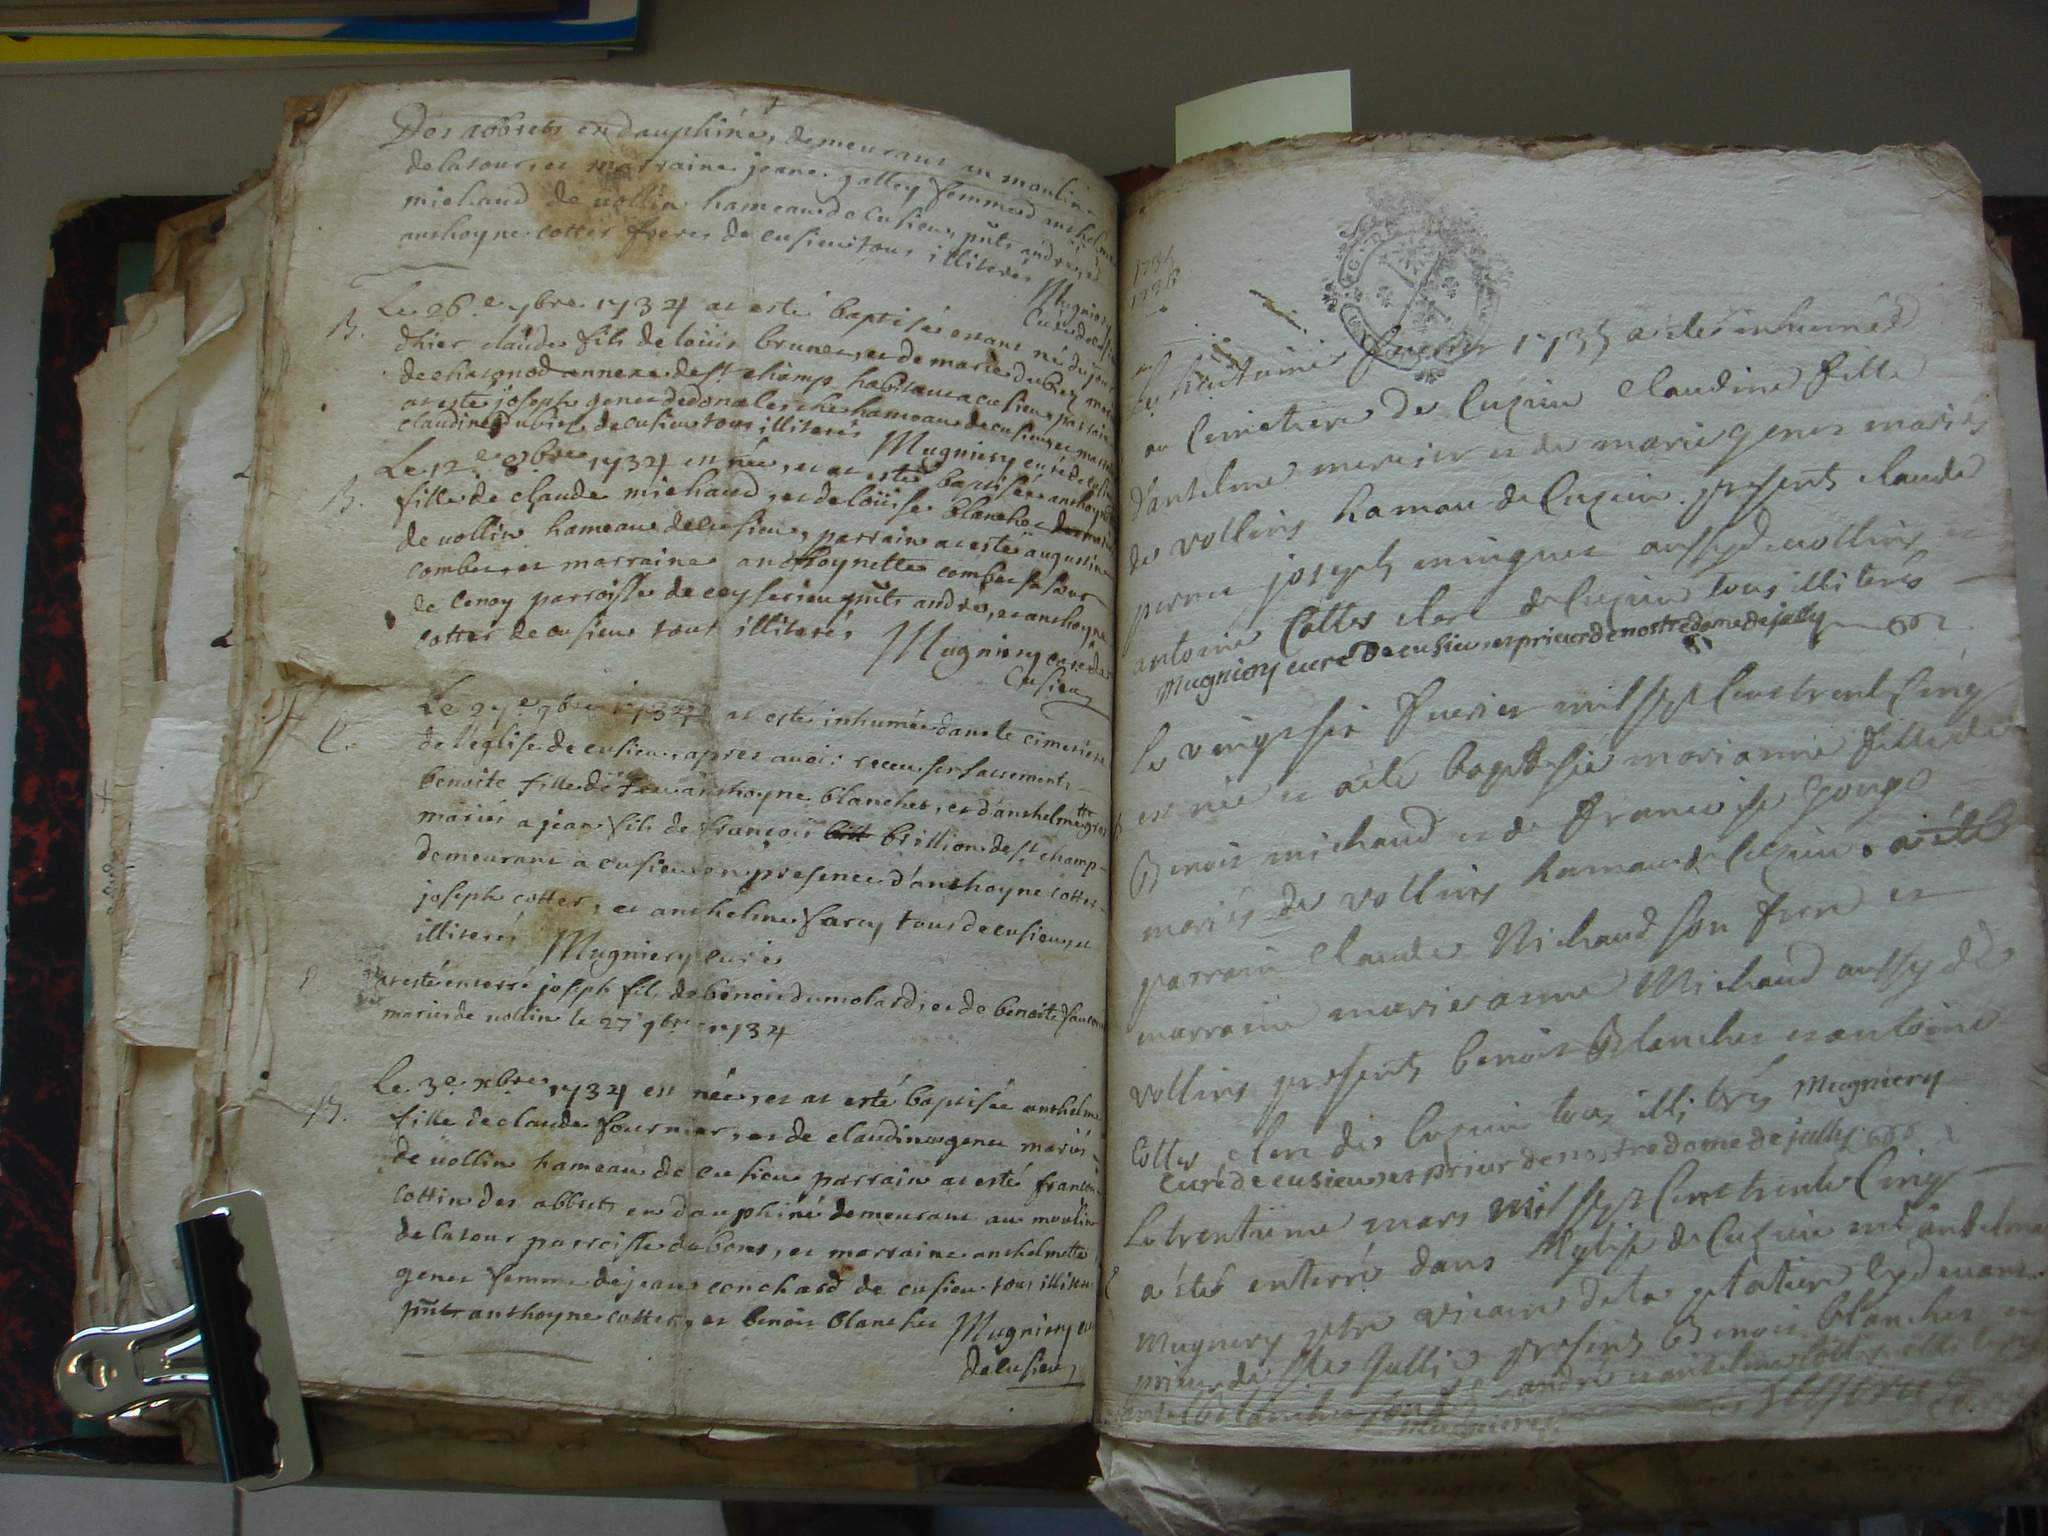 Des abbrets en dauphiné, demeurant au moulin
de la tour, et marraine jeane galley femme d'anthelme
michaud de vollin hameau de cusieu, pñts andre, et
anthoyne cotter freres de cusieu tous illiterés
Mugniery
Curé de cusieu
B. Le 26e 7bre 1734 at esté baptisé estant né du jour
d'hier claude fils de loüis brunet, et de marie dubiez mariés
de chatonod annexe de st champ habitant a cusieu, parrain
at esté joseph genet de hameau de cusieu, et marraine
claudine dubiez de cusieu tous illiterés Mugniery curé de cusieu
B. Le 12e 8bre 1734 est née, et at esté baptisée anthoynette
fille de claude michaud, et de loüise blanchet de mariés
de vollin hameau de cusieu, parrain at esté augustin
combet, et marraine anthoynette combet sa sœur
de lenoy parroisse de ceyserieu pñts andré, et anthoyne
cotter de cusieu tous illiterés
Mugniery curé de
Cusieu
E. Le 27e 7bre 1734 at esté inhumée dans le cimetiere
de l'église de cusieu, apres avoir receu ses sacrements,
benoite fille de feu anthoyne blanchet, et d'anthelmette gros
mariés a jean fils de françois brillion de st champ
demeurant a cusieu en presence d'anthoyne cotter
joseph cotter, et anthelme Farcy tous de cusieu, et
illiterés Mugniery curé
E at esté enterré joseph fils de benoit dumolard, et de benoite
mariés de vollin le 27 9bre 1734
B. Le 3e xbre 1734 est née, et at esté baptisée anthelme
fille de claude fournier, et de claudine genet mariés
de vollin hameau de cusieu parrain at esté françois
cottin des abbrets en dauphiné demeurant au moulin
de la tour parroisse de bons, et marraine anthelmette
genet femme de jean conchard de cusieu tous illiterés
pñts anthoyne cotter, et benoit blanchet Mugniery curé
de cusieu
1735
Le huitaine fevrier 1735 a eté inhumé
au cimetiere de cuzieu Claudine fille
d'antelme mercier et de marie genet mariés
de vollins hamau de Cuzieu. presents claude
pernet joseph minguet aussy de vollins et
antoine Cotter clerc de Cuzieu tous illiterés
Mugniery curé de cusieu, et prieur de nostre dame de jully
Le vingt six fevrier mil sept Cens trent Cinq
est née et a eté baptisée marianne fille de
Benoit michaud et de francoise Gouge
mariés de vollins hamau de Cuzieu. a été
parrain Claude Michaud son frere et
marraine marie anne Michaud aussy de
vollins presents benoit Blanchet et antoine
Cotter clerc de Cuzieu tous illiterés Mugniery
curé de cusieu, et prieur de nostre dame de jully
Le trentieme mars mil sept Cens trente Cinq
E a étéb enterré dans l'Eglise de Cuzieu mre antelme
Mugniery ptre vicaire de la cy devant
prieur de Julli presents Benoit blanchet et
Blanchet son andré et antelme Cotter illiterés
Mugniery